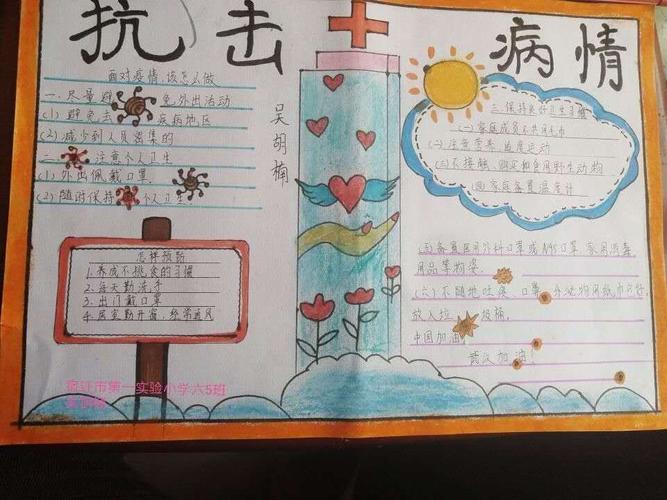 抗击
病情
面对疫情,该怎么做
一.尽量避免外出活动
(1)避免去疾病地区
(2)减少到人员密集的
二.注意个人卫生
(1)外出佩戴口罩
(2)随时保持个人卫生
怎样预防
1.养成不挑食的习惯
2.每天勤洗手
3.出门戴口罩
4.居室勤开窗,经常通风
宿迁市第一实验小学六5班
吴胡楠
三.保持良好卫生习惯
(一)家庭成员不共用毛巾
(二)注意营养 适度运动
(三)不接触、购买和食用野生动物
(四)家庭备置温度计
(五)备置医用外科口罩或N95口罩 家用消毒
用品等物资.
(六)不随地吐痰 口罩
放入垃圾桶,
中国加油
武汉加油!